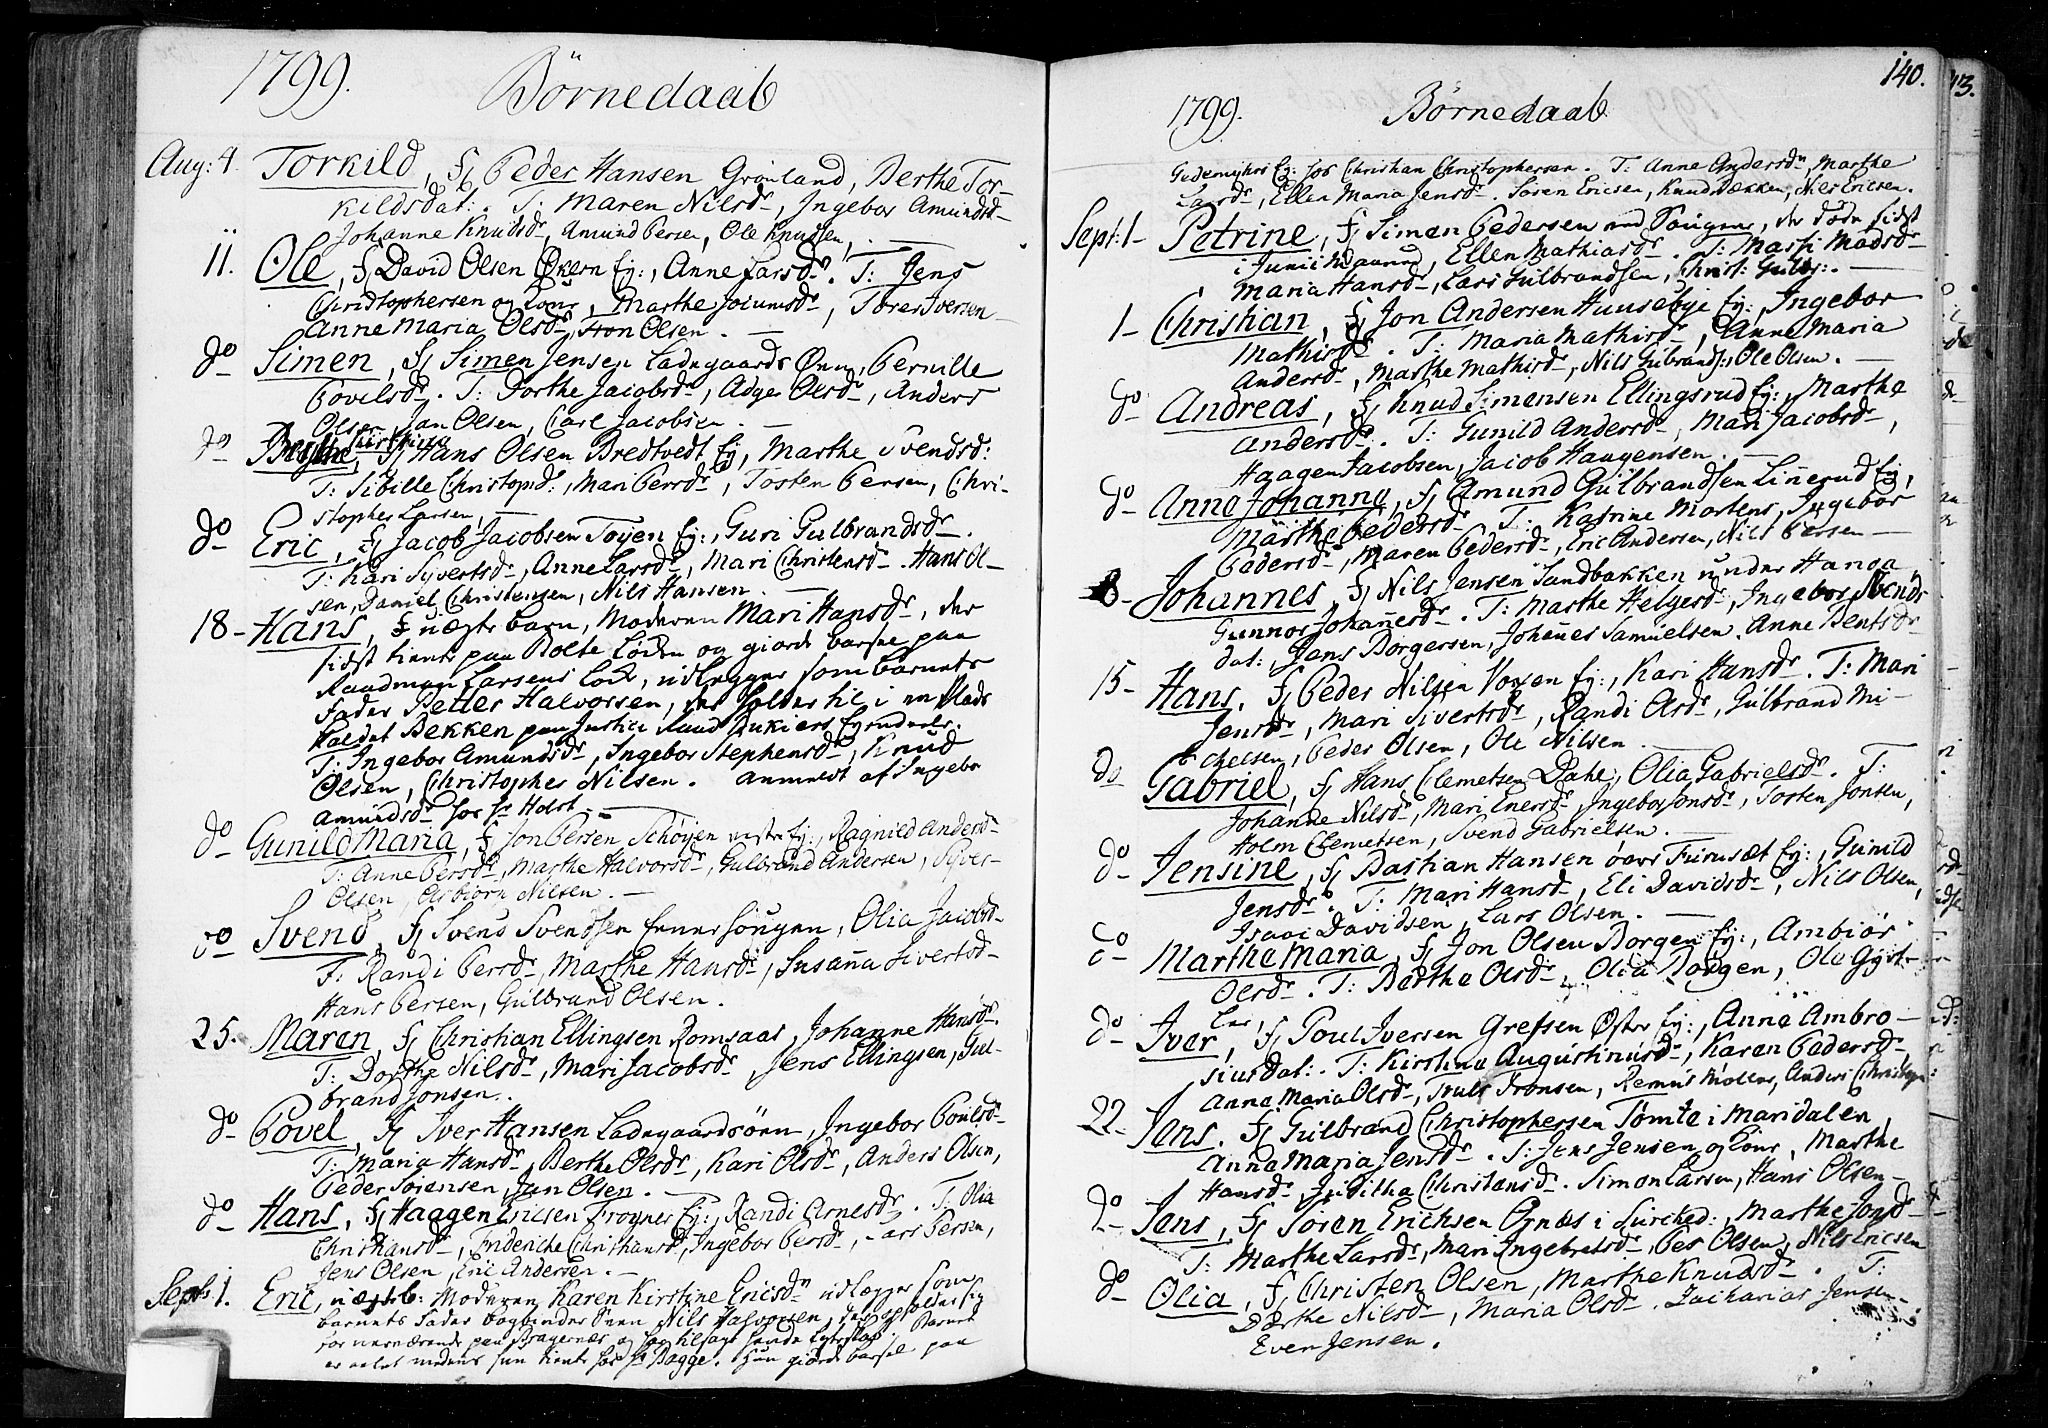 1799.
Börnedaab
Aug: 4. Torkild, f Peder Hansen Grønland, Berthe Tor-
kildsdat: . T: Maren Nilsd, Ingebor Amundsd
Johanne Knudsd, Amund Persen, Ole Knudsen,
11. Ole, f David Olsen Økern Ej:, Anne Larsd. T: Jens
Christophersen og Kone, Marthe Jocumsd, Tores Iversen
Anne Maria Olsd, Tron Olsen.
do Simen, f Simen Jensen Ladegaards Øren, Pernille
Povelsd. T: Dorthe Jacobsd, Olsd, Anders
Olsen, Jan Olsen, Carl Jacobsen.
do f Hans Olsen Bredtvedt Ej, Marthe Svendsd:
T: Sibille Christopd:, Mari Persd, Tosten Persen, Chri-
stopher Larsen,
do Eric, f Jacob Jacobsen Töyen Ej:, Guri Gulbrandsd.
T: Kari Syvertsd, Anne Larsd, Mari Christensd. Hans Ol-
sen, Daniel Christensen, Nils Hansen.
18- Hans, f uægte barn, Moderen Mari Hansd, der
sidst tiente paa Bolte Løkken og giorde barsel paa
Raadman Larsens Løke, udlegger som barnets
Fader Petter Halvorsen, der holder til i en Plads
kaldet Bekken paa Justice Raad
T: Ingebor Amundsd, Ingebor Stephensd, Knud
Olsen, Christopher Nilsen. anmeldt af Ingebor
Amundsd hos Hr Holst.
do Gunild Maria, f Jon Persen Schøyen Ej:, Ragnild Andersd
T: Anne Persd, Marthe Halvorsd, Gulbrand Andersen, Syver
Olsen, Asbiörn Nilsen.
do Svend, f Svend Svendsen Ennersøugen, Olia Jacobsd
T: Randi Persd, Marthe Hansd, Susanna Sivertsd
Hans Persen, Gulbrand Olsen.
25. Maren, f Christian Ellingsen Romsaas, Johanne Hansd.
T: Dorthe Nilsd, Mari Jacobsd, Jens Ellingsen, Gul-
brand Jonsen.
do Povel, f Iver Hansen Ladegaardsörn, Ingebor Poulsd
T: Maria Hansd, Berthe Olsd, Kari Olsd, Anders Olsen,
Peder Sörensen, Jan Olsen.
do Hans, f Haagen Ericsen Frogner Ej:, Randi Arnesd. T: Olia
Christiansd, Frideriche Christiansd, Ingebor Persd, Lars Persen,
Jens Olsen, Eric Andersen.
Sept: 1. Eric, uægte b: Moderen Karen Kirstine Ericsd udlegger som
barnets Fader bogbinder Nils Halvorsen, der opholder sig
for nærværende paa Bragernæs, og har tilsagt hende Egteskab. Barnet
er avlet medens hun tiente hos Hr Bagge. Hun giorde barsel paa
140.
1799.
Börnedaab
Ej: hos Christian Christophersen. T: Anne Andersd, Marthe
Larsd, Ellen Maria Jensd. Sören Ericsen, Knud Bækken, Nils Ericsen.
Sept: 1- Petrine, f Simen Pedersen der døde sidst
i Junii Maaned, Ellen Mathiasd. T: Marthe Madsd
Maria Hansd, Lars Gulbrandsen, Christ: Gulbr:.
1- Christian, f Jon Andersen Huusebye Ej:, Ingebor
Mathisd. T: Maria Mathisd, Anne Maria
Andersd, Marthe Mathisd, Nils Gulbrands:, Ole Olsen.
do Andreas, f Knud Simensen Ellingsrud Ej:, Marthe
Andersd. T: Gunild Andersd, Mari Jacobsd,
Haagen Jacobsen, Jacob Haagensen.
do Anne Johanne, f Amund Gulbrandsen Linnerud Ej,
Marthe Pedersd. T: Katrine Mortens, Ingebor
Pedersd, Maren Pedersd, Eric Andersen, Nils Persen
8- Johannes, f Nils Jensen Sandbakken under Hanga
Gunnor Johannesd. T: Marthe Helgesd, Ingebor Svends
dat:, Jens Borgersen, Johannes Samuelsen. Anne Bentsd
15- Hans, f Peder Nilsen Voxen Ej:, Kari Hansd. T: Mari
Jensd, Mari Sivertsd, Randi Olsd, Gulbrand Mi-
chelsen, Peder Olsen, Ole Nilsen.
do Gabriel, f Hans Clemetsen Dahl, Olia Gabrielsd. T:
Johanne Nilsd, Mari Enersd, Ingebor Jonsd, Tosten Jonsen,
Holm Clemetsen, Svend Gabrielsen.
do Jensine, f Bastian Hansen övre Furusæt Ej:, Gunild
Jensd. T: Mari Hansd, Eli Davidsd, Nils Olsen,
Isaac Davidsen, Lars Olsen.
do Marthe Maria, f Jon Olsen Borgen Ej:, Ambiör
Olsd. T: Berthe Olsd, Olia Borgen, Ole
do Iver, f Poul Iversen Grefsen Øster Ej:, Anne Ambro-
siusdat: . T: Kirstine Augustinusd, Karen Pedersd,
Anne Maria Olsd, Truls Tronsen, Remus Anders Christoph:
22- Jens, f Gulbrand Christophersen Tømte i Maridalen,
Anne Maria Jensd. T: Jens Jensen og Kone, Marthe
Hansd, Juditha Christensd. Simon Larsen, Hans Olsen
do Jens, f Sören Erichsen Ognæs i Sörcked:, Marthe Jonsd
T: Marthe Larsd, Mari Ingebretsd, Per Olsen, Nils Ericsen
do Olia, f Christen Olsen, Marthe Knudsd. T:
Dorthe Nilsd, Maria Olsd. Zacharias Jensen
Even Jensen.